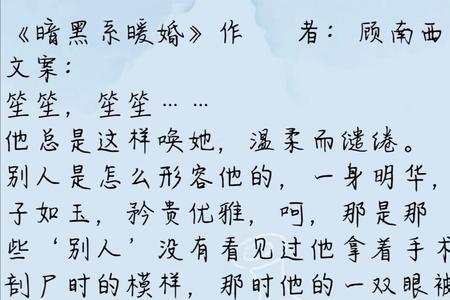 《暗黑系暖婚》作 者：顾南西
文案：
笙笙，笙笙……
他总是这样唤她，温柔而缱绻。
别人是怎么形容他的，一身明华，
子如玉，矜贵优雅，呵，那是那
些‘别人’没有看见过他拿着手术
剖尸时的模样，那时他的一双眼被